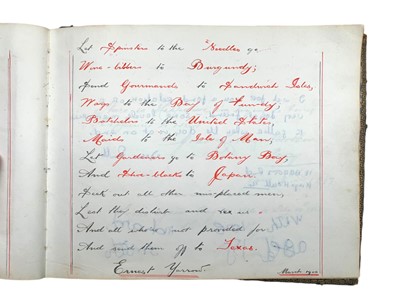 Let Spinsters to the Needles go
Wine-bibbers to Burgundy;
And Gourmands to Sandwich Isles,
Wags to the Bay of Fundy;
Batchelors to the United States,
Maids to the Isle of Man,
Let Gardeners go to Botany Bay,
And Shoe-blacks to Japan.
Seek out all other mis-placed men,
Lest they disturb and vex us.
And all who're not provided for
And send them off to Texas.
Ernest Yarrow.
March